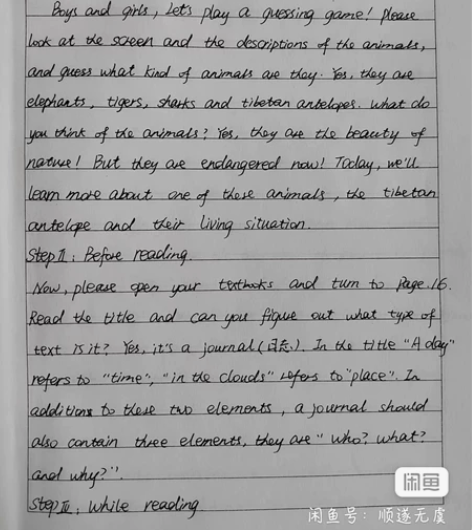 Boys and girls, let's play a guessing game! please
look at the screen and the descriptions of the animals,
and guess what kind of animals are they. Yes, they are
elephants, tigers, sharks and tibetan antelopes. What do
you think of the animals? Yes, they are the beauty of
nature! But they are endangered now! Today, we'll
learn more about one of these animals, the tibetan
antelope and their living situation.
Step II: Before reading.
Now, please open your textbooks and turn to Page 16.
Read the title and can you figue out what type of
text is it? Yes, it's a journal (日志). In the title "A day"
refers to "time", "in the clouds" refers to "place". In
additions to these two elements, a journal should
also contain three elements, they are "who? what?
and why?".
Step III: While reading
闲鱼
闲鱼号：顺遂无虞